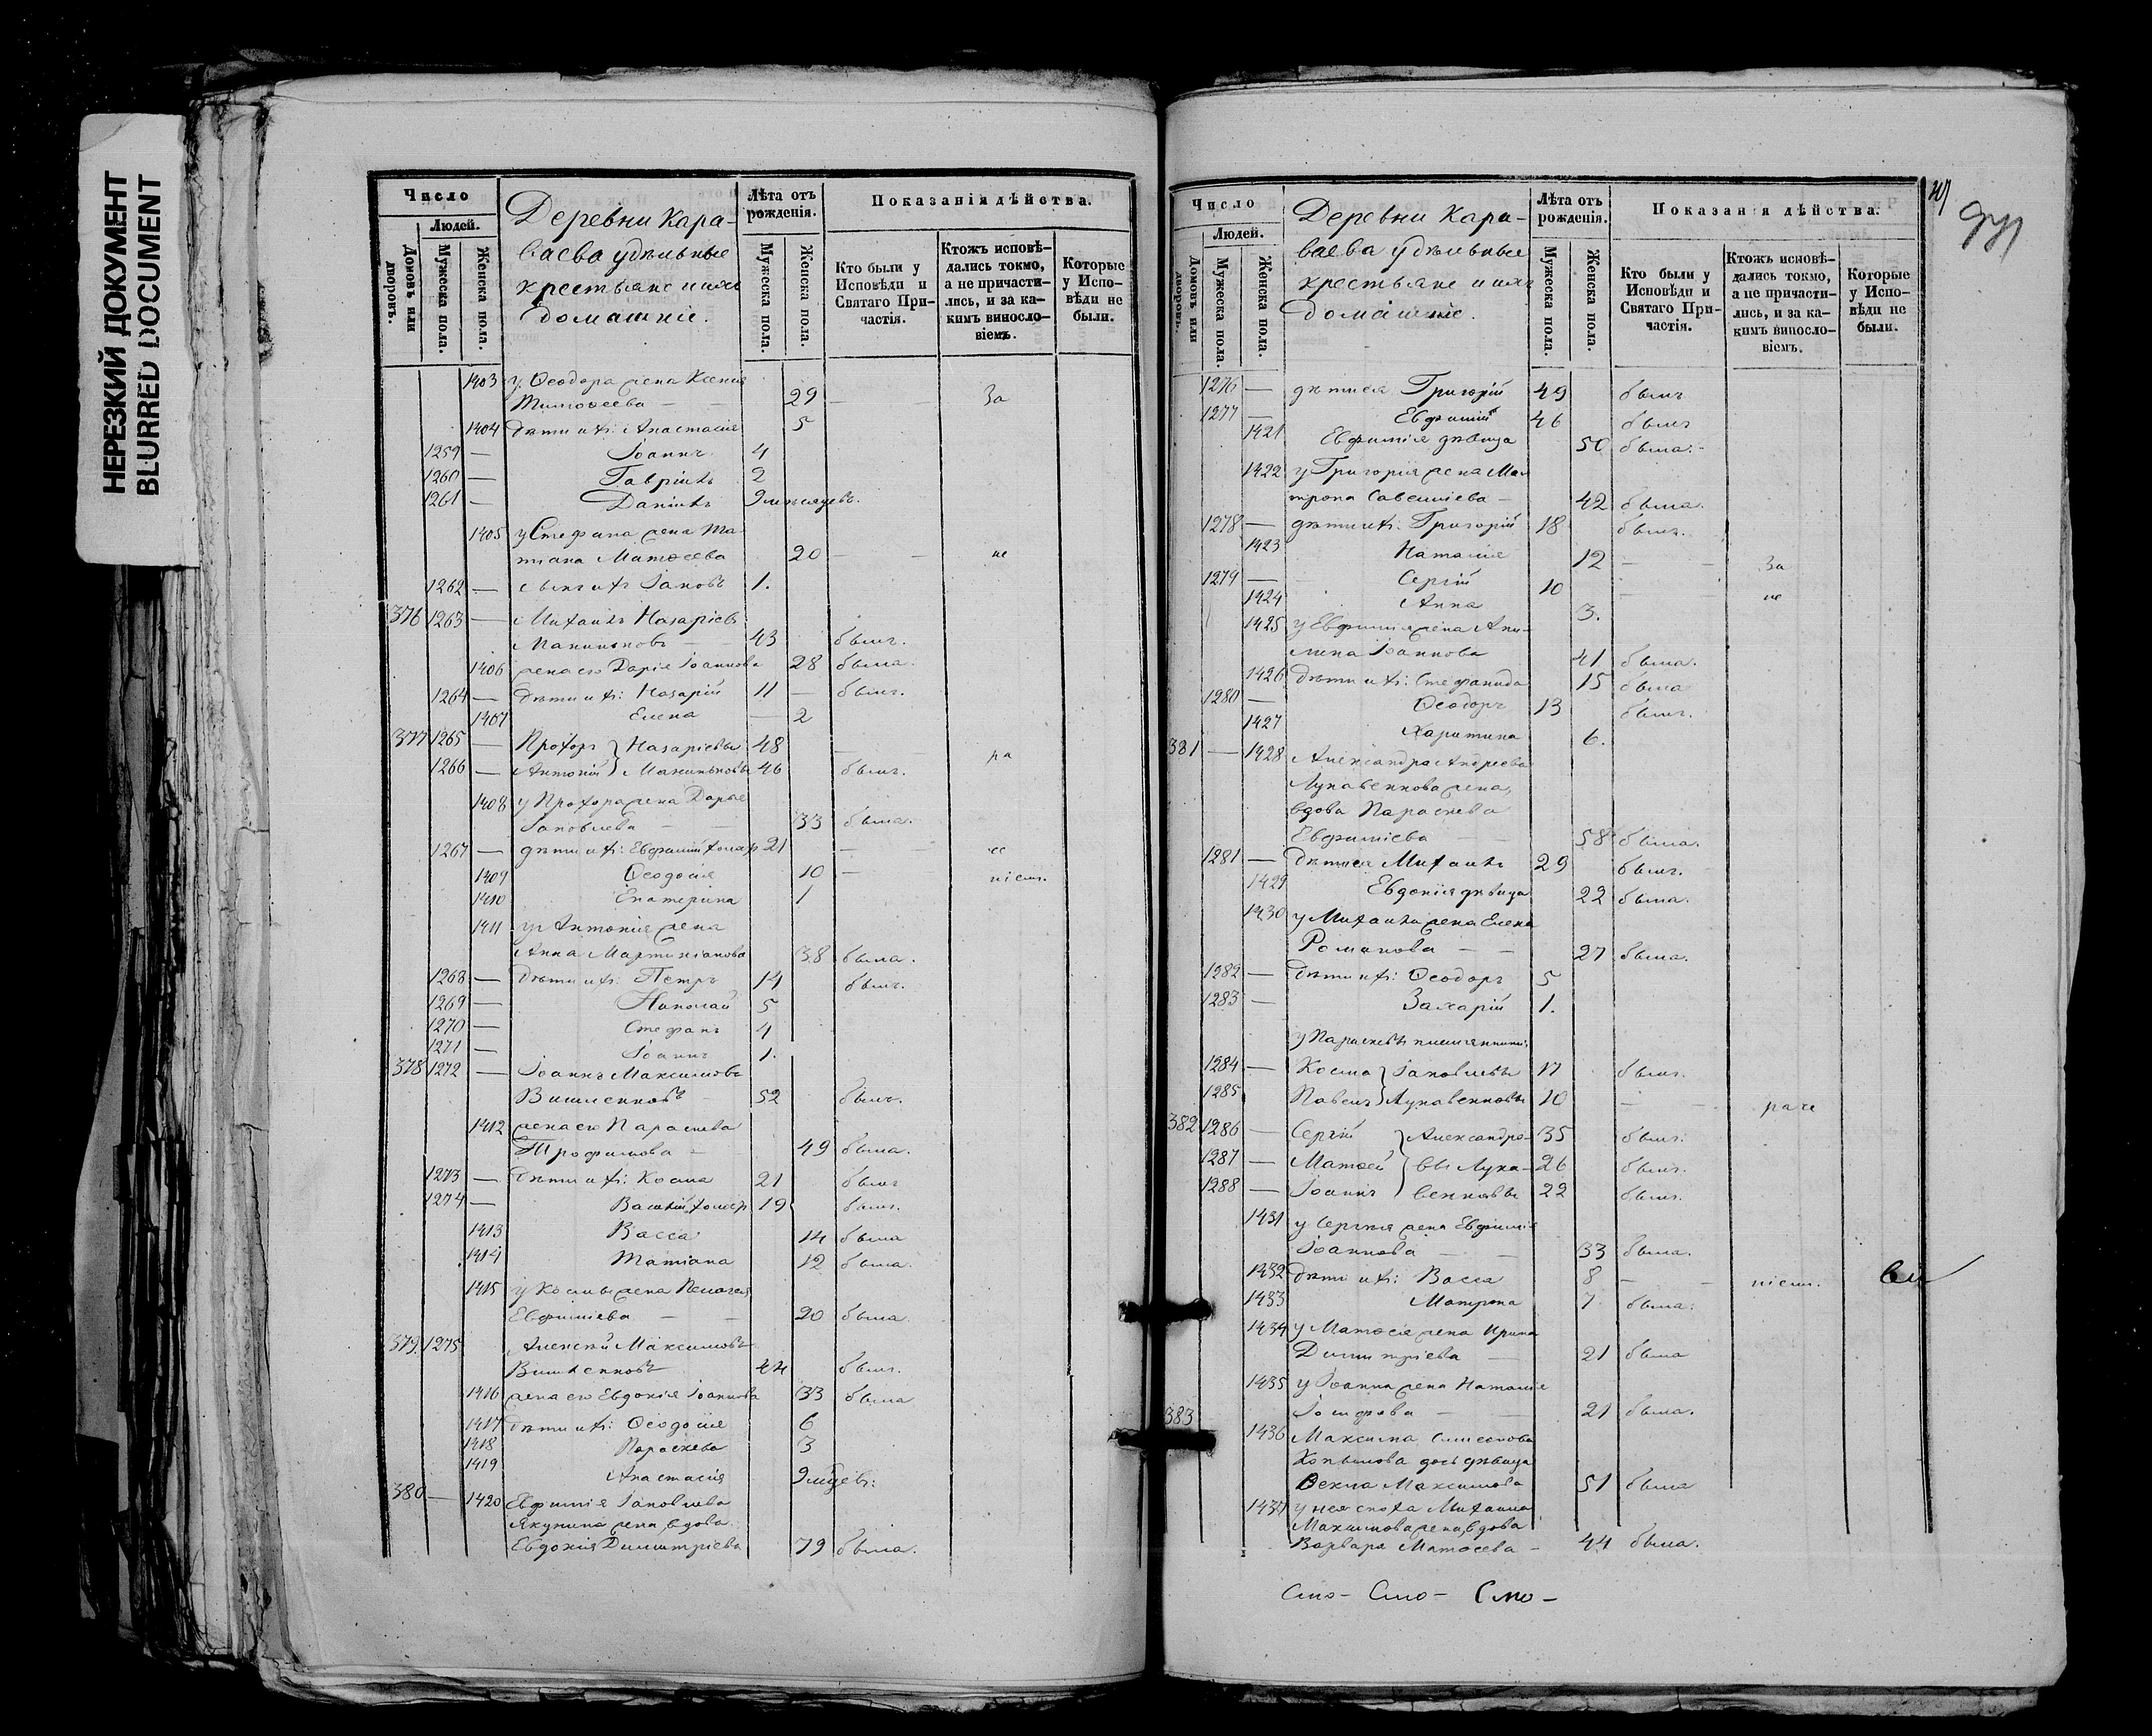 НЕРЕЗКИЙ ДОКУМЕНТ
BLURRED DOCUMENT
Число
Людей.
Домовъ или дворовъ.
Мужеска пола.
Женска пола.
Деревни Кара-
ваева удѣльные
крестьяне и ихъ
домашніе.
Лѣта отъ рожденія.
Мужеска пола.
Женска пола.
Показанія дѣйства.
Кто были у Исповѣди и Святаго При-
частія.
Ктожъ исповѣ-
дались токмо, а не причасти-
лись, и за ка-
кимъ виносло-
віемъ.
Которые у Испо-
вѣди не были.
1403 у Ѳеодора жена Ксенія
Тимоѳеева — 29 — За
1404 дѣти ихъ: Анастасія 5
1259 — Іоаннъ 4
1260 — Гавріилъ 2
1261 — Даніилъ 9 мѣсяцевъ.
1405 у Стефана жена Та-
тіана Матѳеева 20 — — не
1262 — сынъ ихъ Іаковъ 1.
376 1263 — Михаилъ Назаріевъ
43 былъ.
1406 жена его Дарія Іоаннова 28 была.
1264 — дѣти ихъ: Назарій 11 — былъ.
1407 Елена — 2
377 1265 — Прохоръ } Назаріевы 48 — ра
1266 — Антоній } 46 былъ.
1408 у Прохора жена Дарья
Іаковлева — 33 была.
1267 — дѣти ихъ: Евфимій холос. 21 — —
1409 Ѳеодосія 10 — ніемъ.
1410 Екатерина 1
1411 у Антонія жена
Анна Мартиніанова 38 была.
1268 — дѣти ихъ: Петръ 14 былъ.
1269 — Николай 5
1270 — Стефанъ 4
1271 — Іоаннъ 1.
378 1272 — Іоаннъ Максимовъ
52 былъ.
1412 жена его Параскева
Трофимова — 49 была.
1273 — дѣти ихъ: Косма 21 былъ
1274 — Василій холос. 19 былъ.
1413 Васса 14 была
1414 Татіана 12 была.
1415 у Космы жена Пелагея
Евфиміева — — 20 была.
379. 1275 Алексей Максимовъ
44 былъ.
1416 жена его Евдокія Іоаннова 33 была
1417 дѣти ихъ: Ѳеодосія 6
1418 Параскева 3
1419 Анастасія 9 мѣцевъ:
380 — 1420 Евфимія Іаковлева
Якунина жена вдова
Евдокія Димитріева 79 была.
Число
Людей.
Домовъ или дворовъ.
Мужеска пола
Женска пола.
Деревни Кара-
ваева удѣльные
крестьяне и ихъ
домашніе.
Лѣта отъ рожденія.
Мужеска пола.
Женска пола.
Показанія дѣйства.
Кто были у Исповѣди и Святаго При-
частія.
Ктожъ исповѣ-
дались токмо, а не причасти-
лись, и за ка-
кимъ виносло-
віемъ.
Которые у Испо-
вѣди не были.
1276 — дѣти ея Григорій 49 былъ
1277 — Евфимій 46 былъ
1421 Евфимія дѣвица 50 была.
1422 у Григорія жена Ма-
трона Савелліева — 42 была.
1278 — дѣти ихъ: Григорій 18 былъ.
1423 Наталія 12 — — За
1279 — Сергій 10 — не
1424 Анна 3.
1425 у Евфимія жена Аки-
лина Іоаннова 41 была.
1426 дѣти ихъ: Стефанида 15 была
1280 — Ѳеодоръ 13 былъ.
1427 Харитина 6.
381 — 1428 Александра Андреева
Лукавенкова жена,
вдова Параскева
Евфиміева — 58 была.
1281 — дѣти ея Михаилъ 29 былъ.
1429 Евдокія дѣвица 22 была.
1430 у Михаила жена Елена
Романова — — 27 была.
1282 — дѣти ихъ: Ѳеодоръ 5
1283 — Захарій 1.
у Параскевы племянники
1284 — Косма } Іаковлевы 17 былъ.
1285 Павелъ } Лукавенковы 10 — —
382 1286 — Сергій } Александро- 35 былъ.
1287 — Матѳей } вы Лука- 26 былъ.
1288 — Іоаннъ } венковы 22 былъ.
1431 у Сергія жена Евфимія
Іоаннова — — 33 была.
1432 дѣти ихъ: Васса 8 — — ніемъ.
1433 Матрона 7 была:
1434 у Матѳея жена Ирина
Димитріева — 21 была
1435 у Іоанна жена Наталія
Іосифова — — 21 была.
383
1436 Максима Симеонова
Копылова дочь дѣвица
Ѳекла Максимова 51 была
1437 у нея сноха Михаила
Максимова жена, вдова
Варвара Матѳеева — 44 была.